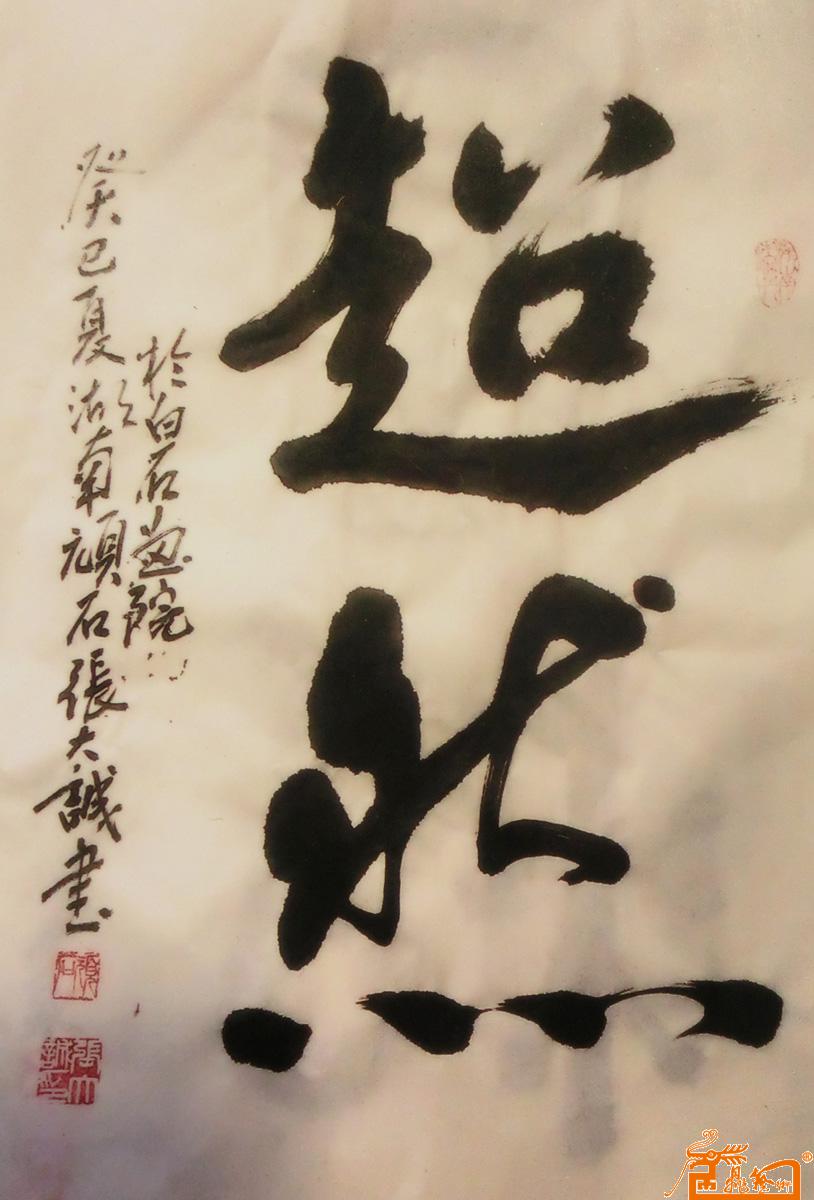 超然
癸巳夏湖南頑石張大誠書
於白石画院